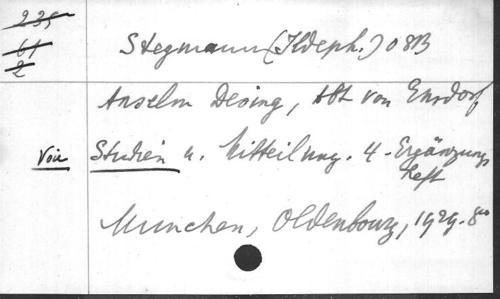 235
61
2
Stegmann (Ildeph.) OSB
Anselm Desing, Abt von Ensdorf
Voir Studien u. Mitteilung. 4. Ergänzungs
heft
München, Oldenbourg, 1929. 8°